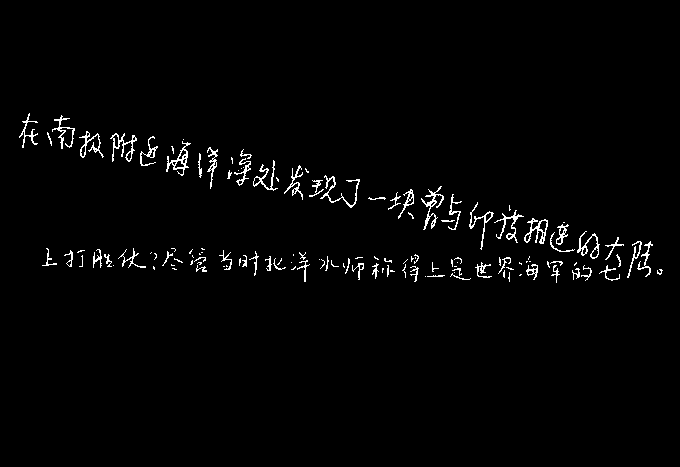 在南极附近海洋深处发现了一块曾与印度相连的大陆。
上打胜仗?尽管当时北洋水师称得上是世界海军的七